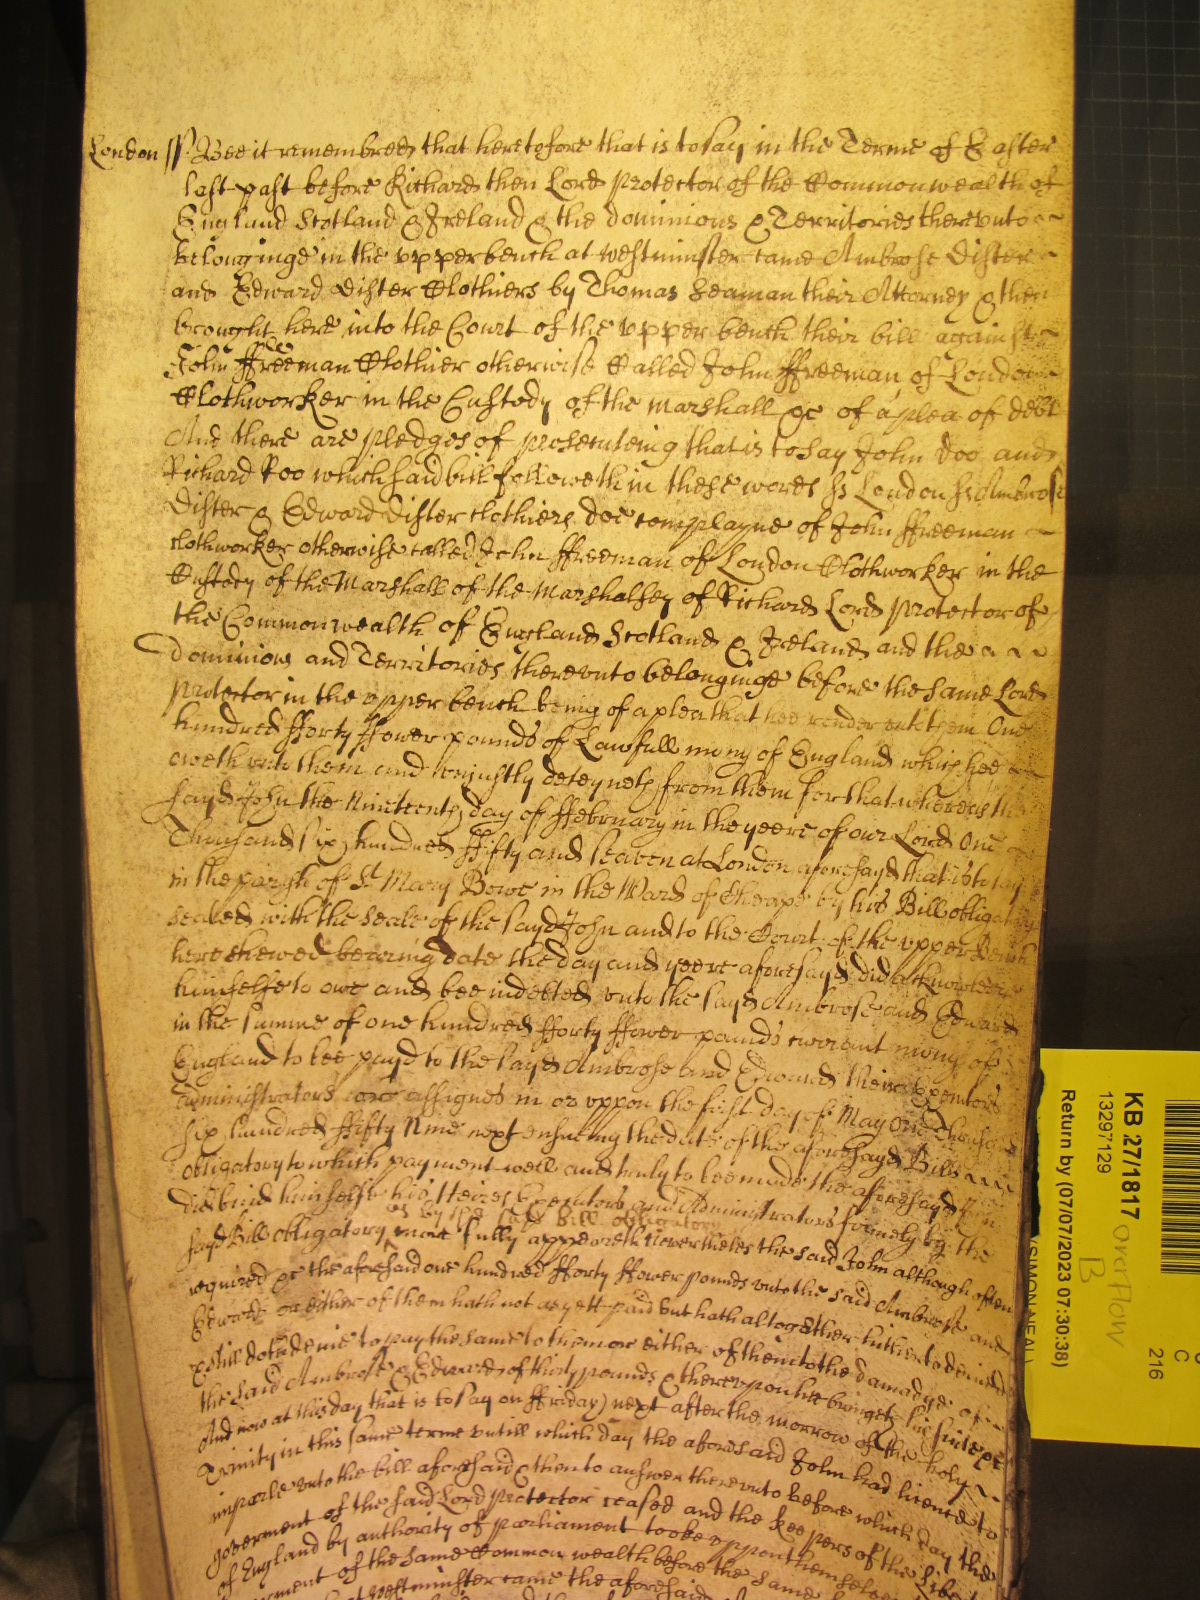 London ss Bee it remembred that heretofore that is to say in the Terme of Easter
last past before Richard then Lord Protector of the Commonwealth of
England Scotland & Ireland & the dominions & Territories therevnto
belonginge in the vpper bench at westminster came Ambrose Dister
and Edward Dister Clothiers by Thomas Seaman their Attorney & then
brought here into the Court of the vpper bench their bill against
John ffreeman Clothier otherwise Called John ffreeman of London
Clothworker in the Custody of the Marshall &c of a plea of debt
And there are pledges of prosecuteing that is to say John Doo and
Richard Roo which said bill followeth in these words ss London ss Ambrose
Dister & Edward Dister clothiers doe complayne of John ffreeman
clothworker otherwise called John ffreeman of London Clothworker in the
Custody of the Marshall of the Marshalsey of Richard Lord Protector of
the Commonwealth of England Scotland & Ireland and the
Dominions and Territories therevnto belonginge before the same Lord
Protector in the vpper bench being of a plea that hee render vnto them One
hundred fforty ffower pounds of Lawfull mony of England which hee
oweth vnto them and vniustly deteyneth from them for that whereas the
sayd John the Nineteenth day of ffebruary in the yeere of our Lord One
Thousand six hundred ffifty and seaven at London aforesayd that is to say
in the parish of St Mary Bowe in the Ward of Cheape by his Bill obligatory
sealed with the Seale of the sayd John and to the Court of the vpper Bench
here shewed bearing date the day and yeere aforesayd did acknowledge
himselfe to owe and bee indebted vnto the sayd Ambrose and Edward
in the summe of one hundred fforty ffower pounds currant mony of
England to bee payd to the sayd Ambrose and Edward their Executors
Administrators or assignes in or vppon the first day of May One Thousand
six hundred ffifty Nine next ensueing the date of the aforesayd Bill
obligatory to which payment well and truly to bee made the aforesayd John
did bind himselfe his Heires Executors and Administrators firmely by the
as by the said Bill obligatory
sayd Bill obligatory more fully appeareth Neverthelesse the said John although often
required &c the aforesaid one hundred fforty ffower pounds vnto the said Ambrose and
Edward or either of them hath not as yett paid but hath altogether hitherto denied
& still doth denie to pay the same to them or either of them to the damadge of
the said Ambrose & Edward of thirty pounds & therevpon hee bringeth his suite &c
And now at this day that is to say on ffriday next after the morrow of the holy
Trinity in this same terme vntill which day the aforesaid John had licence to
imparle vnto the bill aforesaid & then to answer therevnto before which day the
goverment of the said Lord Protector ceased and the Keepers of the
of England by authority of Parliament tooke vppon themselves
of the same Common wealth before the same
at Westminster came the aforesaid
KB 27/1817
13297129
Return by (07/07/2023 07:30:38)
(SIMON NEAL)
overflow
B
C
216